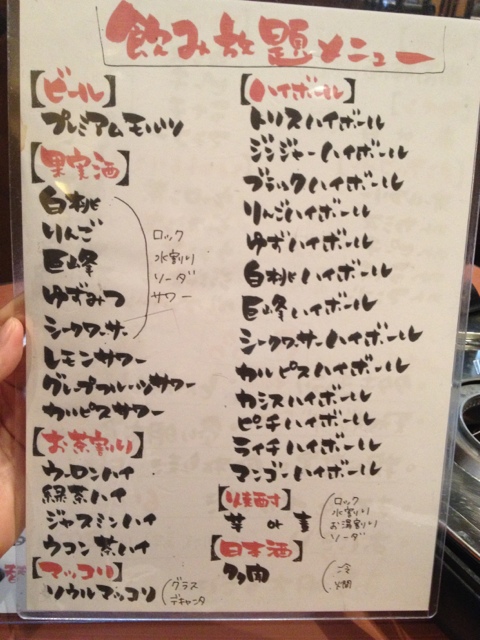 飲み放題メニュー
【ビール】
プレミアムモルツ
【果実酒】
白桃
りんご
巨峰
ゆずみつ
シークワーサー
ロック
水割り
ソーダ
サワー
レモンサワー
グレープフルーツサワー
カルピスサワー
【お茶割り】
ウーロンハイ
緑茶ハイ
ジャスミンハイ
ウコン茶ハイ
【マッコリ】
ソウルマッコリ
グラス
デキャンタ
【ハイボール】
トリスハイボール
ジンジャーハイボール
ブラックハイボール
りんごハイボール
ゆずハイボール
白桃ハイボール
巨峰ハイボール
シークワーサーハイボール
カルピスハイボール
カシスハイボール
ピーチハイボール
ライチハイボール
マンゴーハイボール
【焼酎】
芋 or 麦
ロック
水割り
お湯割り
ソーダ
【日本酒】
冷
燗